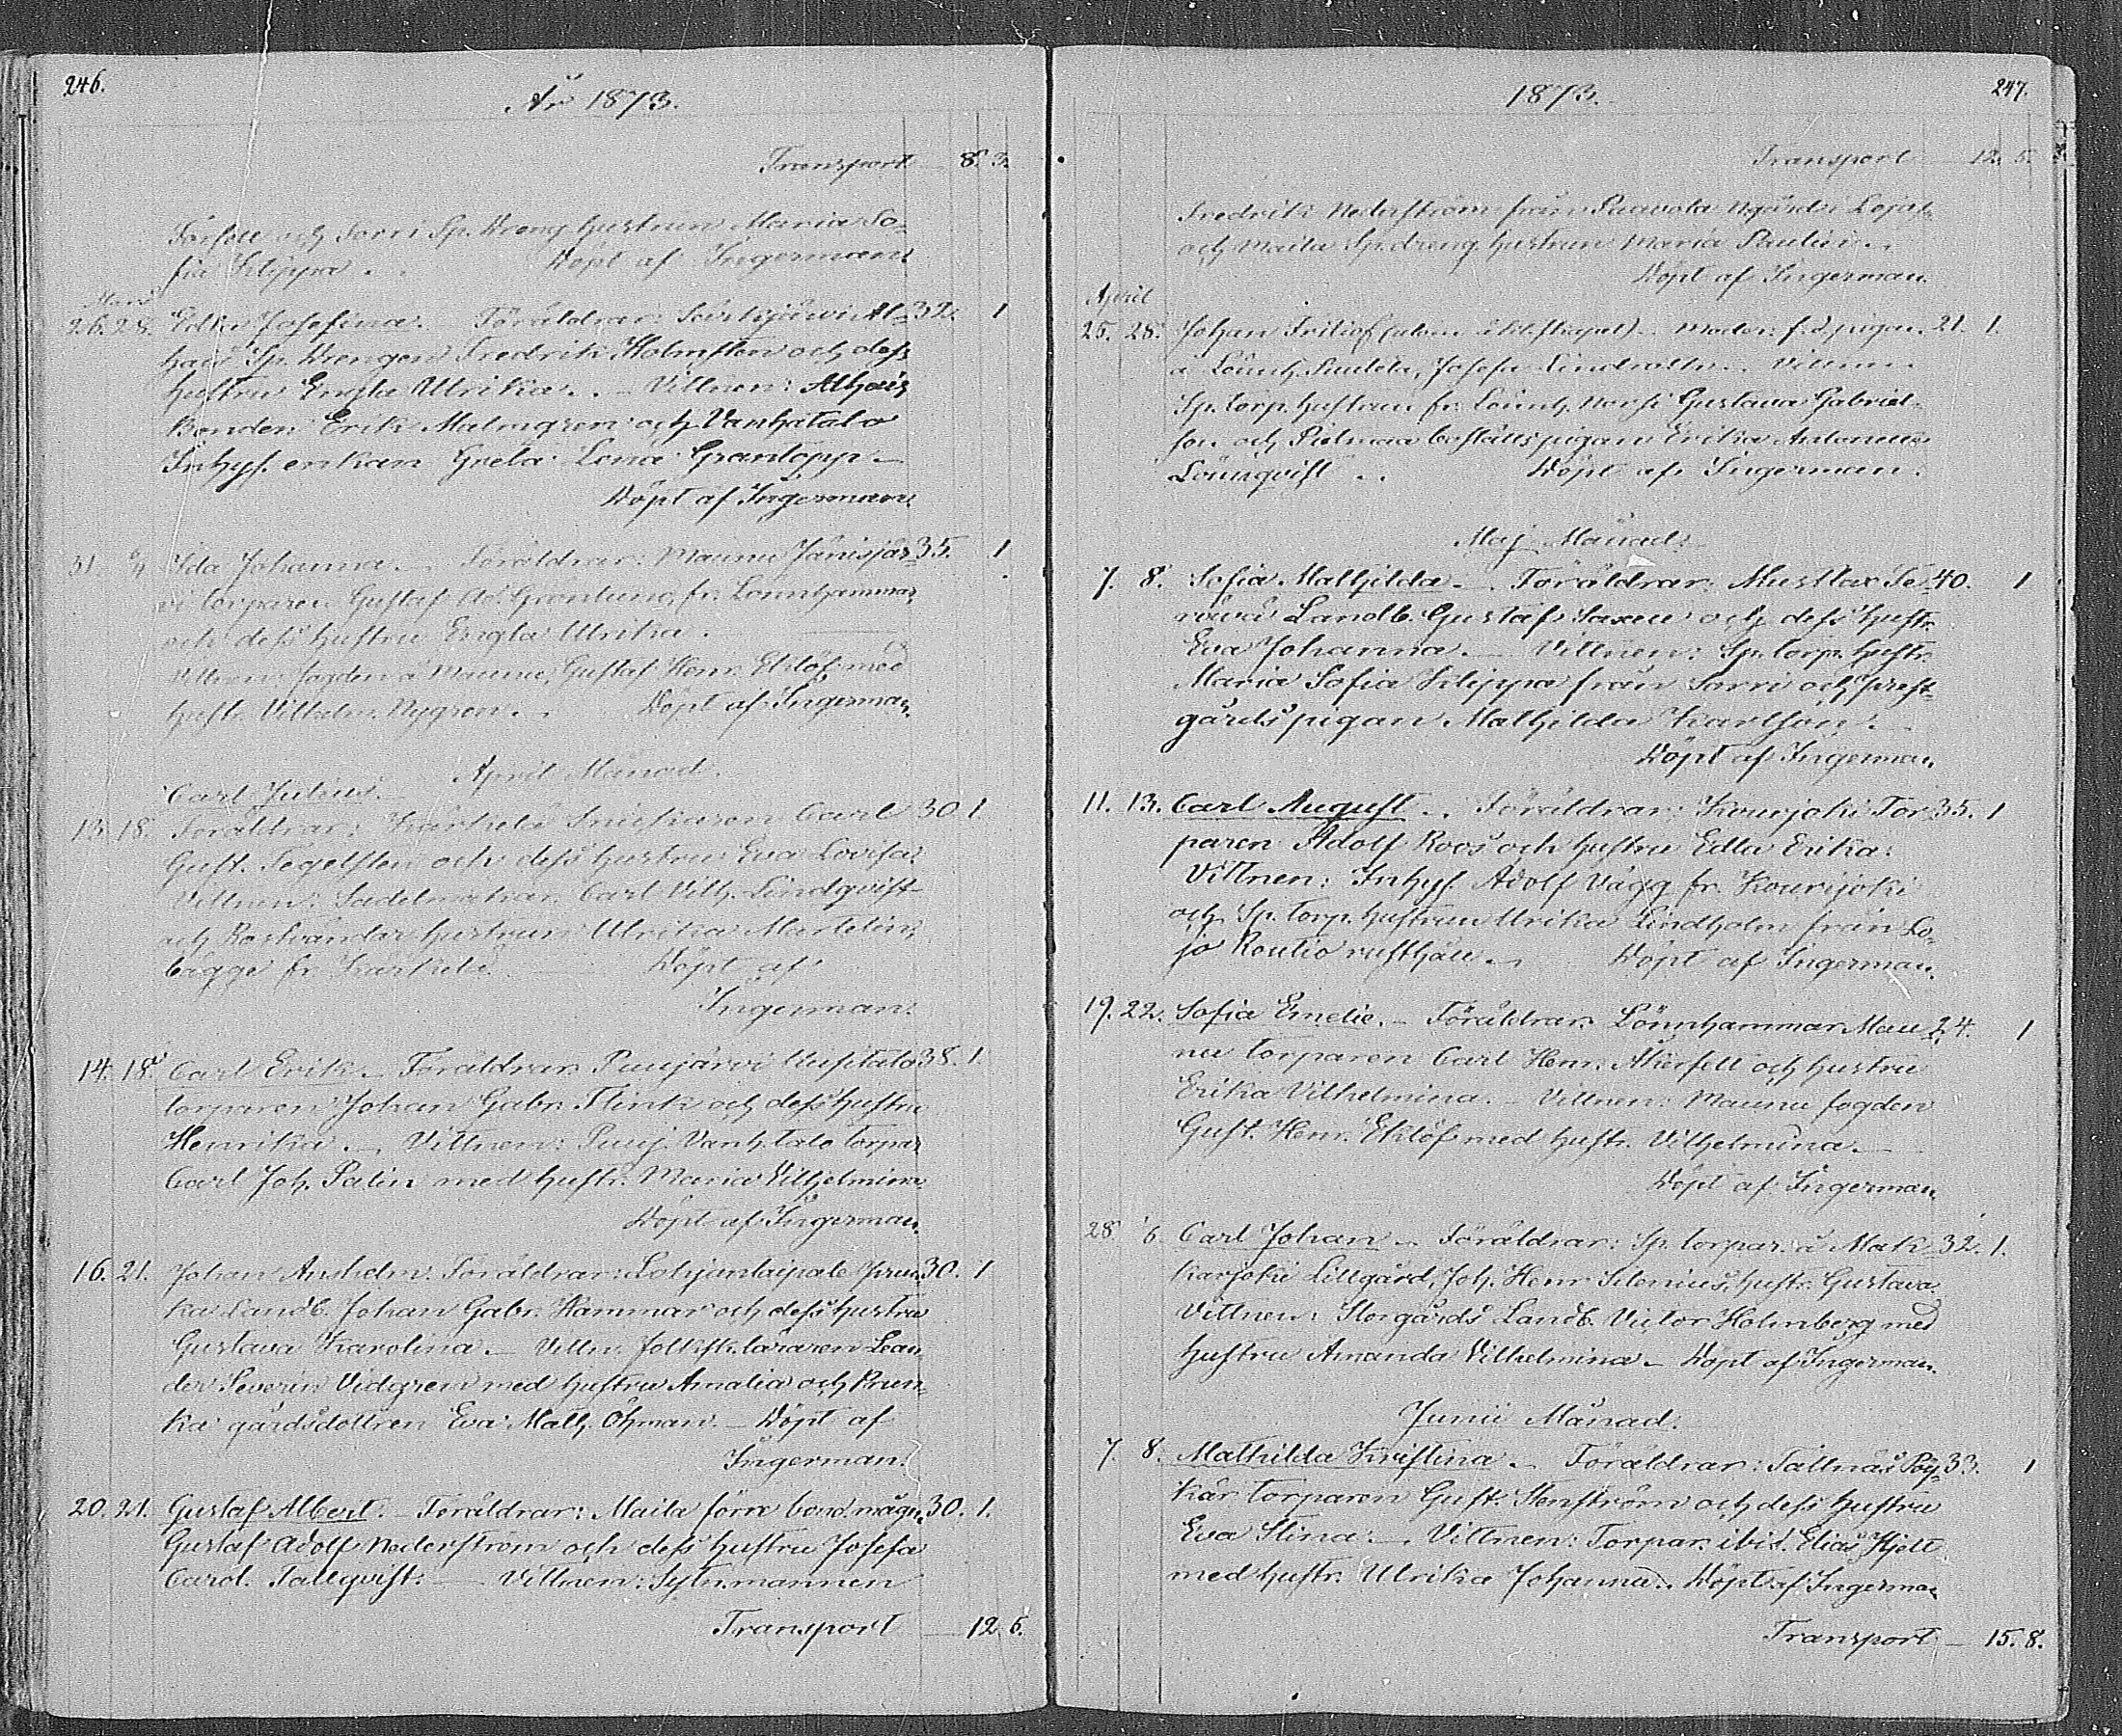 246.
År 1873.
Transport 8. 3.
och Sorri Sp. dreng hustrun Maria So-
fia Klippa. Döpt af Ingerman.
Mars
26. 28. Edla Josefina. Föräldrar: 32. 1
Sp. drengen Fredrik Holmsten och dess
hustru Engla Ulrika. Vittnen:
Bonden Erik Malmgren och Vanhatalo
Inhys. enkan Greta Lena Grantopp.
Döpt af Ingerman.
31. Ida Johanna. Föräldrar: Maunu Jänisjär- 35. 1
vi torparen Gustaf Ad. Grönlund, fr. Lönnhammar,
och dess hustru Engla Ulrika.
Vittnen: fogden å Maunu, Gustaf Henr. Eklöf med
hustr. Vilhelm. Nygren. Döpt af Ingerman.
April Månad.
Carl Julius.
13. 18. Föräldrar: Kärkelä Carl 30 1.
Gust. Tegelsten och dess hustru Eva Lovisa.
Vittnen: Sadelmakar. Carl Vilh. Lindqvist
och hustrun Ulrika Martelin,
bägge fr. Kärkelä. Döpt af
Ingerman.
14. 18. Carl Erik. Föräldrar: Puujärvi Uusitalo 38. 1.
torparen Johan Gabr. Flink och dess hustru
Henrika. Vittnen: Puuj. Vanh.talo torpar.
Carl Joh. Palin med hustr. Maria Vilhelmina.
Döpt af Ingerman.
16. 21. Johan Anshelm. Föräldrar: Lohjantaipale Prun- 30. 1
ka Landb. Johan Gabr. Hammar och dess hustru
Gustava Karolina. Vittn. folksk.läraren Lean-
der Severin Vidgren med hustru Amalia och Prun-
ka gårdsdottren Eva Math. Öhman. Döpt af
Ingerman.
20. 21. Gustaf Albert. Föräldrar: Maila förre bond. mågen 30. 1.
Gustaf Adolf Nederström och dess hustru Josefa
Carol. Tallqvist. Vittnen: Sytn.mannen
Transport 12 5.
1873.
247.
Transport 12. 5.
Fredrik Nederström från Paavola Ngård i Lojo
och Maila Sp. dreng hustrun Maria Paulin.
Döpt af Ingerman.
April
25. 28. Johan Fritiof Moder: f. d. pigan 21. 1.
å Lönnh. Josefa Lindroth. Vittnen
Sp. torp. hustrun fr. Lönnh. Norsi Gustava Gabriel-
son och boställs pigan Erika Antonetta
Lönnqvist. Döpt af Ingerman.
Maj Månad.
7. 8. Sofia Mathilda. Föräldrar: Mustlax Te- 40. 1
rävä Landb. Gustaf Saxen och dess hustr.
Eva Johanna. Vittnen: Sp. torp. hustr.
Maria Sofia Klippa från Sorri och prest-
gårds pigan Mathilda Karlson.
Döpt af Ingerman.
11. 13. Carl August. Föräldrar: Kourjoki Tor- 35. 1
paren Adolf Roos och hustru Edla Erika.
Vittnen: Inhys. Adolf Vägg fr. Kourijoki
och Sp. torp. hustrun Ulrika Lindholm från Lo-
jo Routio rusthåll. Döpt af Ingerman.
19. 22. Sofia Emelie. Föräldrar: Lönnhammar Mau- 24. 1
nu torparen Carl Henr. Åkerfelt och hustru
Erika Vilhelmina. Vittnen: Maunu fogden
Gust. Henr. Eklöf med hustr. Vilhelmina.
Döpt af Ingerman.
28. 6. Carl Johan. Föräldrar: Sp. torpar. å Mak- 32. 1.
karjoki Lillgård, Joh. Henr. Selenius, hustr. Gustava.
Vittnen: Storgårds Landb. Victor Holmberg med
hustru Amanda Vilhelmina. Döpt af Ingerman.
Junii Månad.
7. 8. Mathilda Kristina. Föräldrar: Tallnäs Pöy- 33. 1
kär torparen Gust. Stenström och dess hustru
Eva Stina. Vittnen: Torpar. ibid. Elias Hjelt
med hustr. Ulrika Johanna. Döpt af Ingerman.
Transport 15. 8.